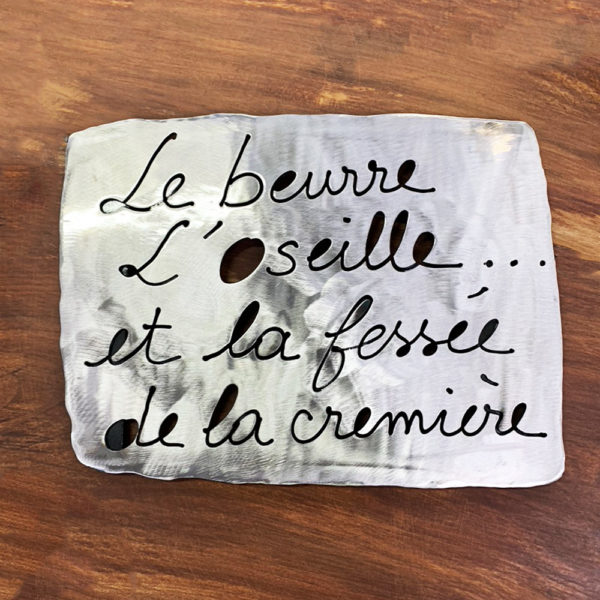 Le beurre
L'oseille...
et la fessée
de la cremière